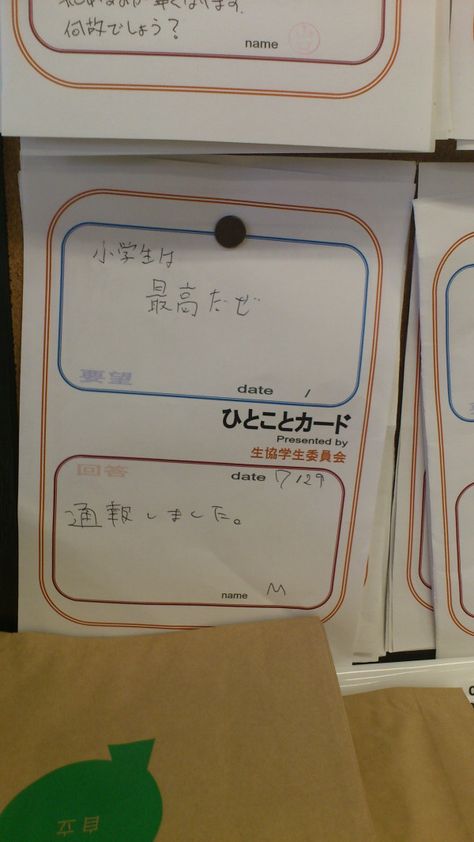 何故でしょう？
name 山口
小学生は
最高だぜ
要望
date /
ひとことカード
Presented by
生協学生委員会
回答
date 7/29
通報しました。
name M
自立